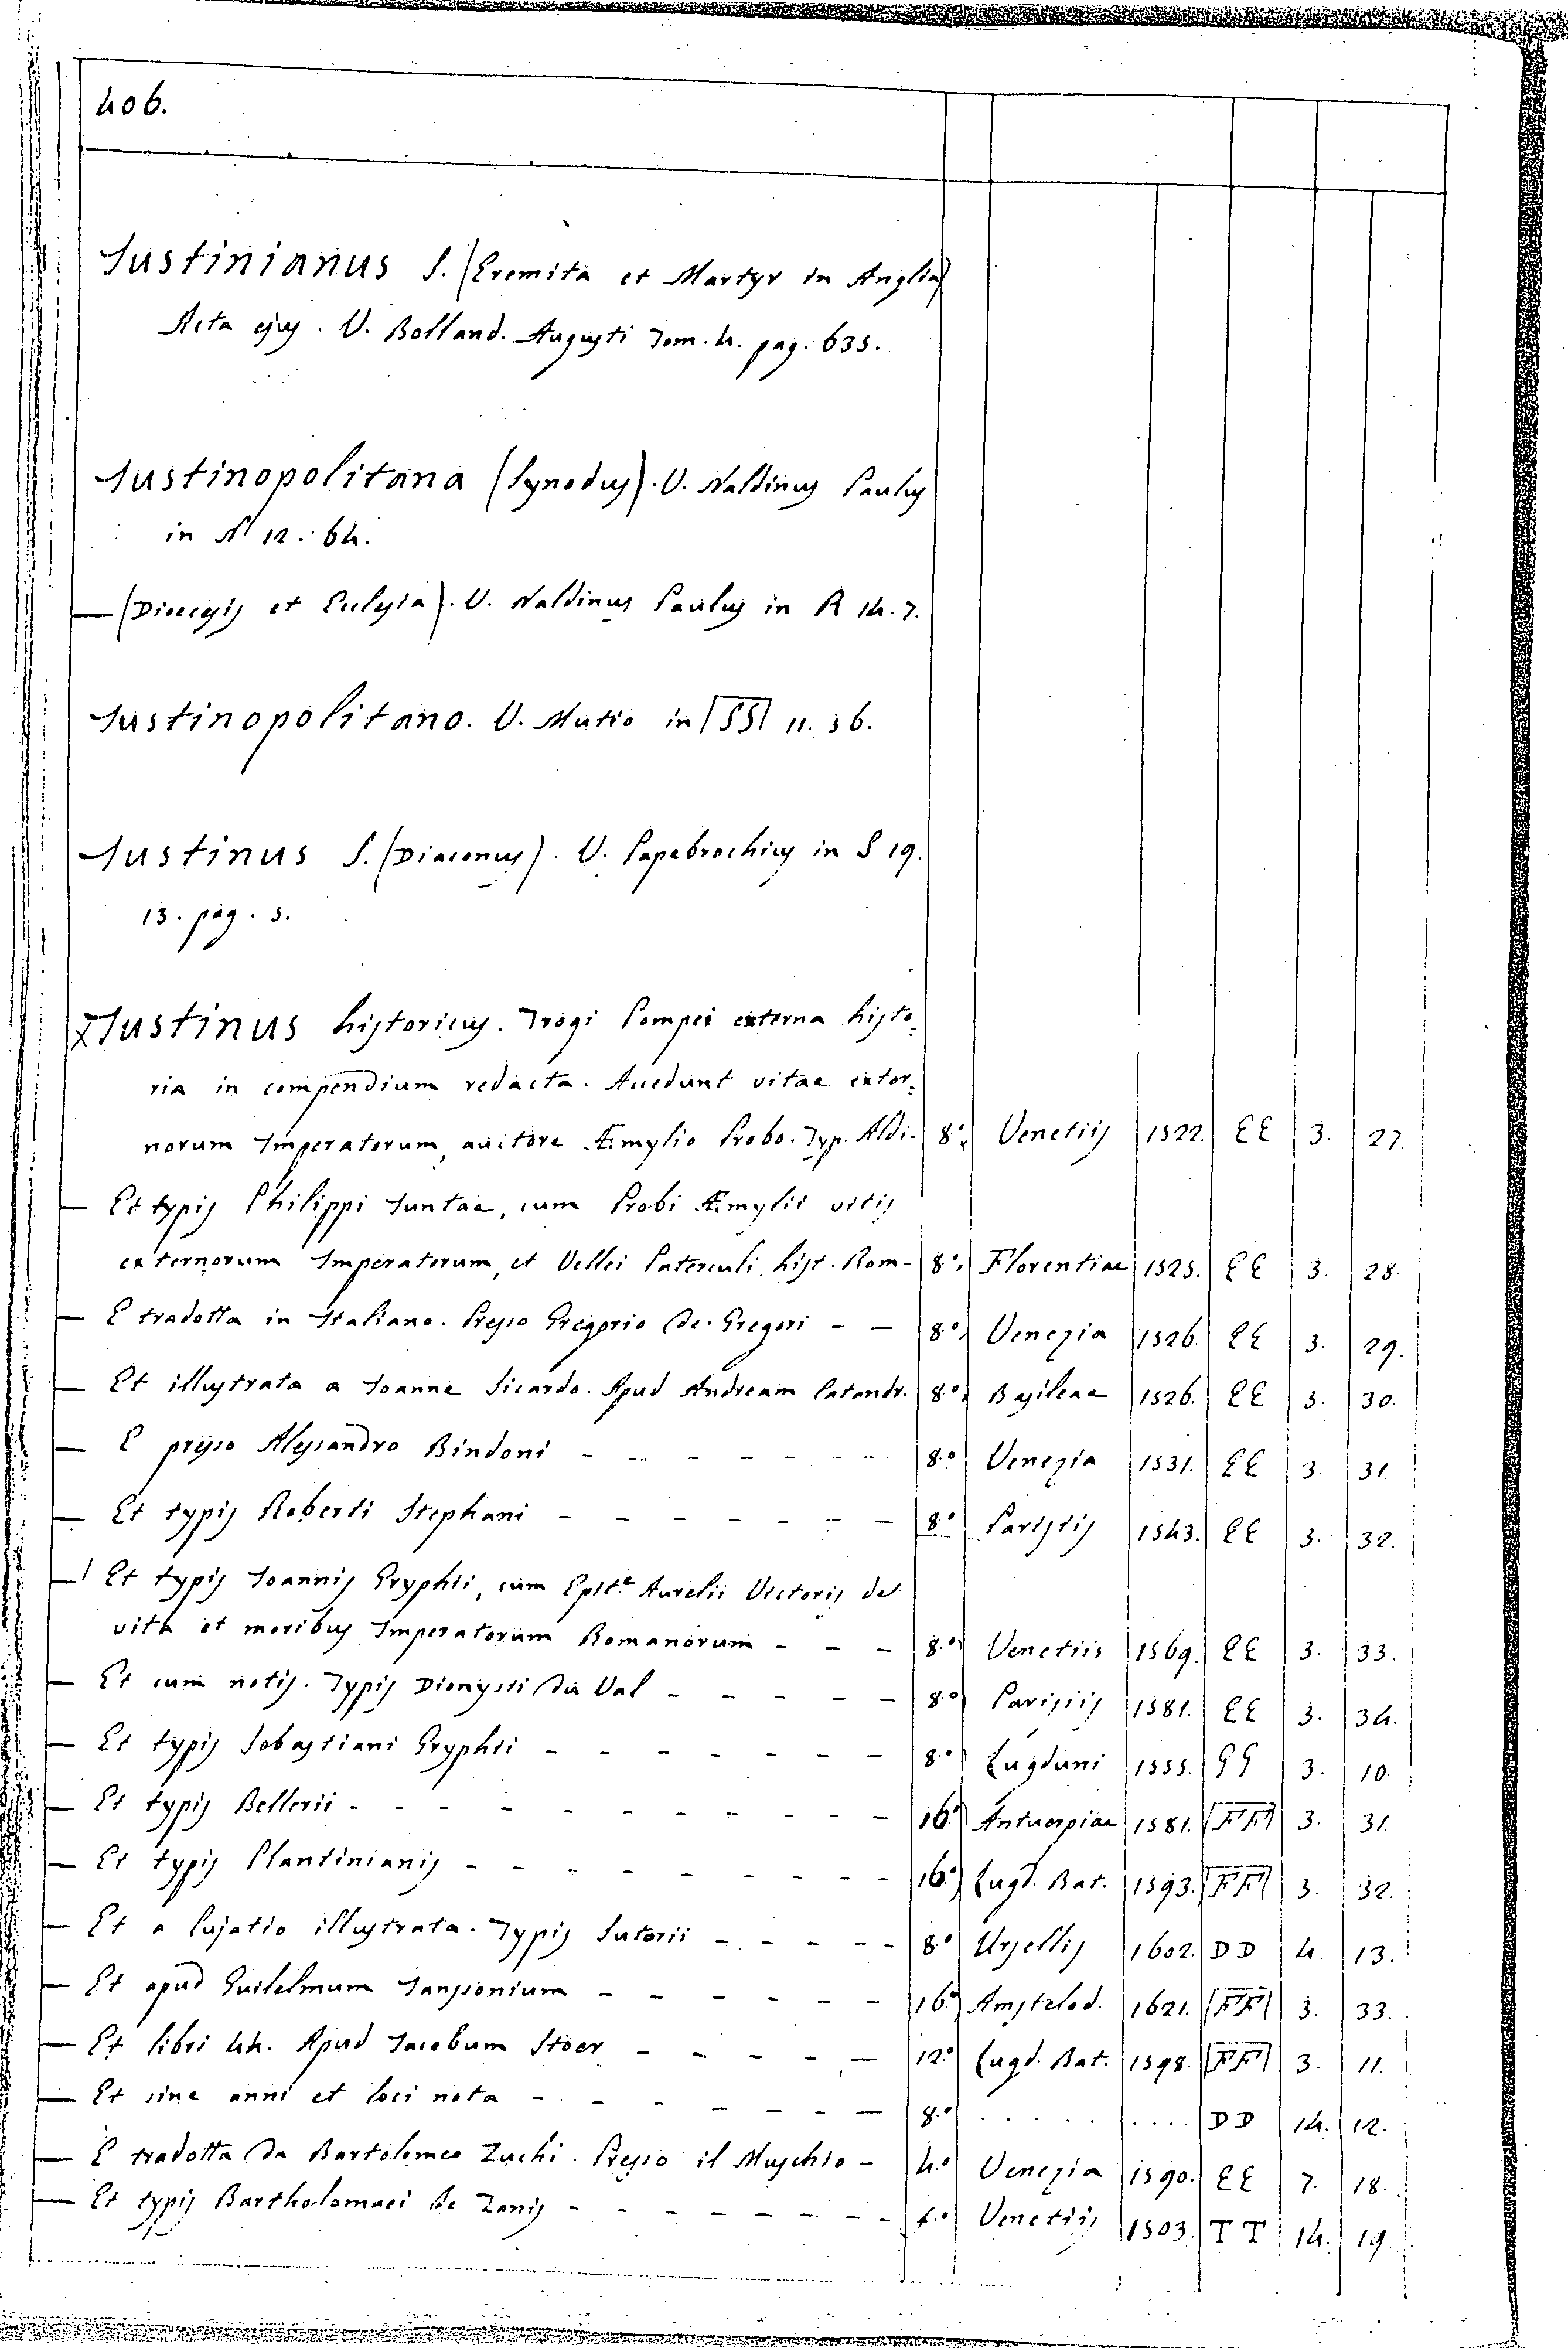 406.
Justinianus S. (Eremita et Martyr in Anglia)
Acta ejus. V. Bolland. Augusti Tom. 4. pag. 635.
Justinopolitana (Synodus). V. Naldinus Paulus
in N 12. 64.
— (Dioecesis et Ecclesia). V. Naldinus Paulus in R 14. 7.
Justinopolitano. V. Mutio in SS 11. 36.
Justinus S. (Diaconus). V. Papebrochius in S 19.
13. pag. 5.
Justinus historicus. Trogi Pompei externa histo-
ria in compendium redacta. Accedunt vitae exter-
norum Imperatorum, auctore Æmylio Probo. Typ. Aldi- 8.º Venetiis 1522. EE 3. 27.
— Et typis Philippi Juntae, cum Probi Æmylii vitis
externorum Imperatorum, et Vellei Paterculi hist. Rom- 8.º Florentiae 1525. EE 3. 28.
— E tradotta in Italiano. Presso Gregorio de Gregori - - 8.º Venezia 1526. EE 3. 29.
— Et illustrata a Joanne Sicardo. Apud Andream Catandr. 8.º Basileae 1526. EE 3. 30.
— E presso Alessandro Bindoni - - - - - - 8.º Venezia 1531. EE 3. 31.
— Et typis Roberti Stephani - - - - - - - 8.º Parisiis 1543. EE 3. 32.
— Et typis Joannis Gryphii, cum Epit.e Aurelii Victoris de
vita et moribus Imperatorum Romanorum - - - 8.º Venetiis 1569. EE 3. 33.
— Et cum notis. Typis Dionysii du Val - - - - - 8.º Parisiis 1581. EE 3. 34.
— Et typis Sebastiani Gryphii - - - - - - - 8.º Lugduni 1555. GG 3. 10.
— Et typis Bellerii - - - - - - - - - - 16.º Antuerpiae 1581. FF 3. 31.
— Et typis Plantinianis - - - - - - - - 16.º Lugd. Bat. 1593. FF 3. 32.
— Et a Cujatio illustrata. Typis Sutorii - - - - - 8.º Ursellis 1602. DD 4. 13.
— Et apud Guilelmum Janssonium - - - - - - 16.º Amstelod. 1621. FF 3. 33.
— Et libri 44. Apud Jacobum Stoer - - - - - 12.º Lugd. Bat. 1598. FF 3. 11.
— Et sine anni et loci nota - - - - - - - 8.º . . . . . . . . . DD 14. 12.
— E tradotta da Bartolomeo Zuchi. Presso il Muschio - 4.º Venezia 1590. EE 7. 18.
— Et typis Bartholomaei de Zanis - - - - - - - f.º Venetiis 1503. TT 14. 19.